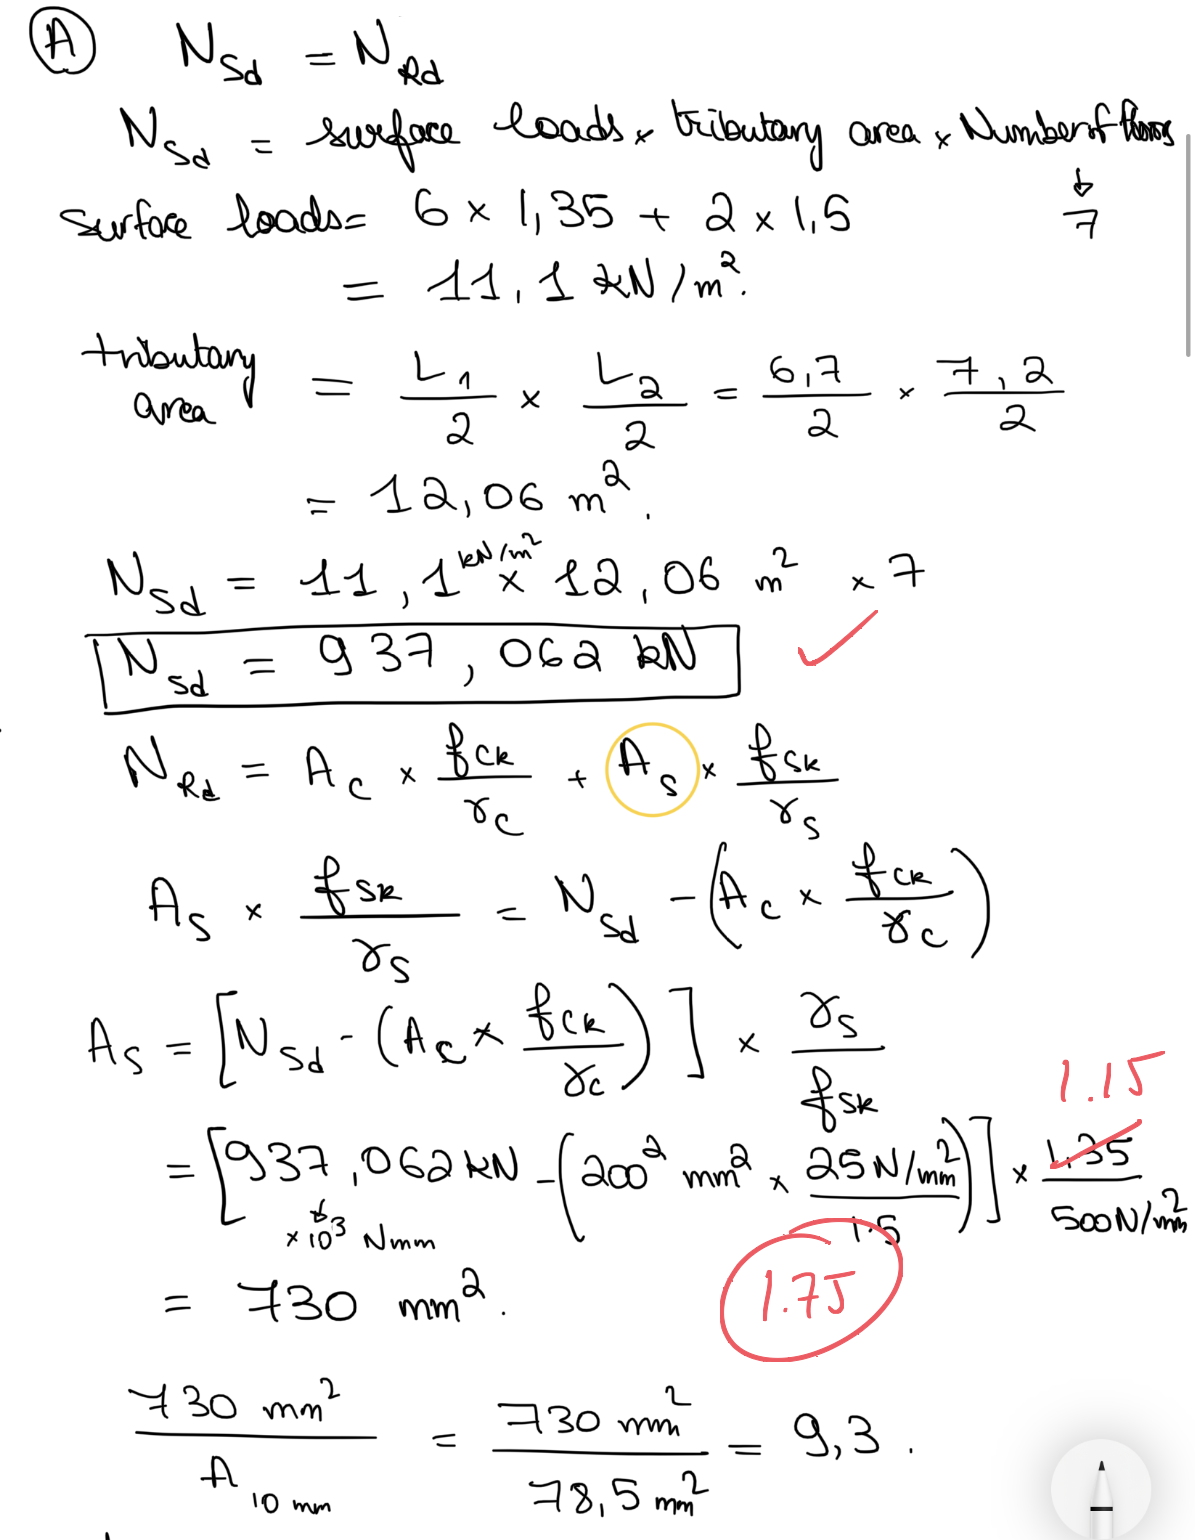 Ⓐ N_Sd = N_Rd
N_Sd = surface loads × tributary area × Number of floors
↓
7
surface loads = 6 × 1,35 + 2 × 1,5
= 11,1 kN/m².
tributary area = L₁/2 × L₂/2 = 6,7/2 × 7,2/2
= 12,06 m².
N_Sd = 11,1 kN/m² × 12,06 m² × 7
N_Sd = 937,062 kN ✓
N_Rd = A_c × f_ck/γ_c + A_s × f_sk/γ_s
A_s × f_sk/γ_s = N_Sd - (A_c × f_ck/γ_c)
A_s = [N_Sd - (A_c × f_ck/γ_c)] × γ_s/f_sk
1.15
= [937,062 kN - (200² mm² × 25 N/mm²/1.5)] × 1.35/500 N/mm²
↓
×10³ Nmm
1.75
= 730 mm².
730 mm²/A_10 mm = 730 mm²/78,5 mm² = 9,3.